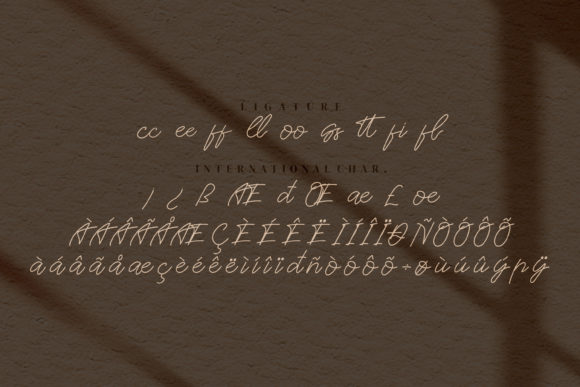 LIGATURE
cc ee ff ll oo gs tt fi fl
INTERNATIONAL CHAR.
¡ ¿ ß Æ đ Œ æ £ œ
ÀÁÂÃÅÆÇÈÉÊËÌÍÎÏÐÑÒÓÔÕ
àáâãåæçèéêëìíîïđñòóôõ÷øùúûýþÿ